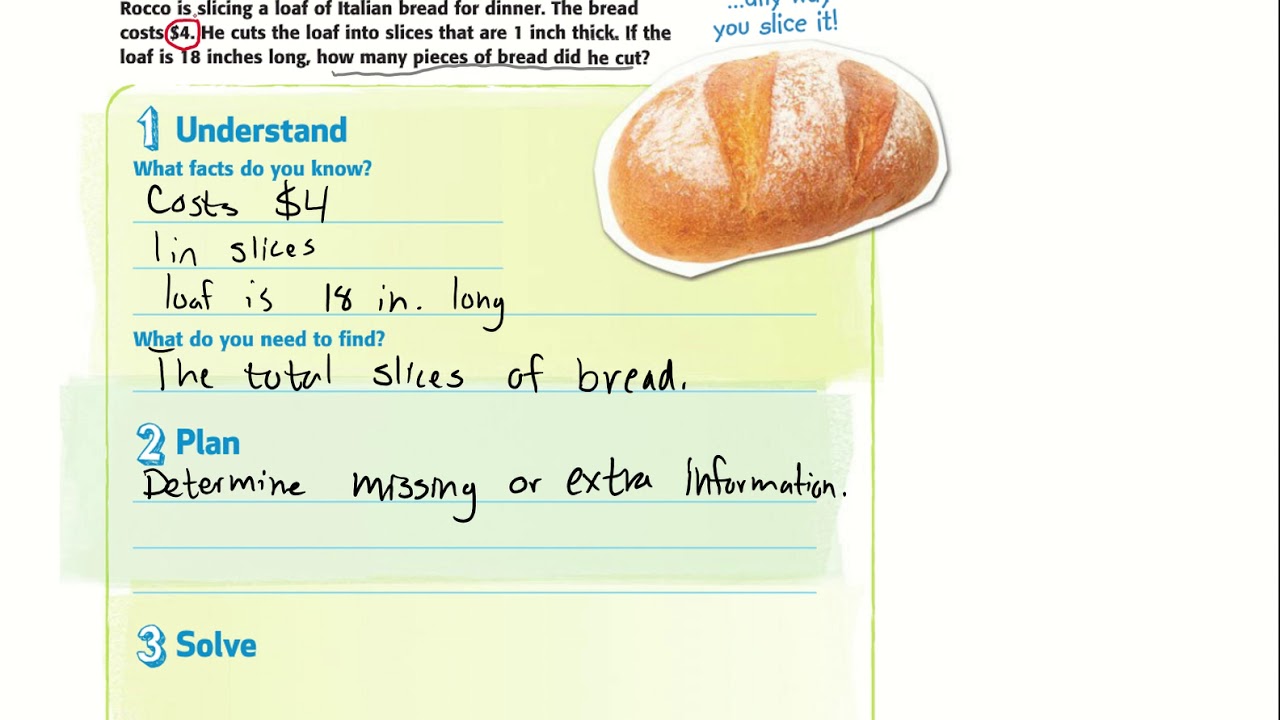 Rocco is slicing a loaf of Italian bread for dinner. The bread
costs $4. He cuts the loaf into slices that are 1 inch thick. If the
loaf is 18 inches long, how many pieces of bread did he cut?
you slice it!
1 Understand
What facts do you know?
Costs $4
1in slices
loaf is 18 in. long
What do you need to find?
The total slices of bread.
2 Plan
Determine missing or extra information.
3 Solve